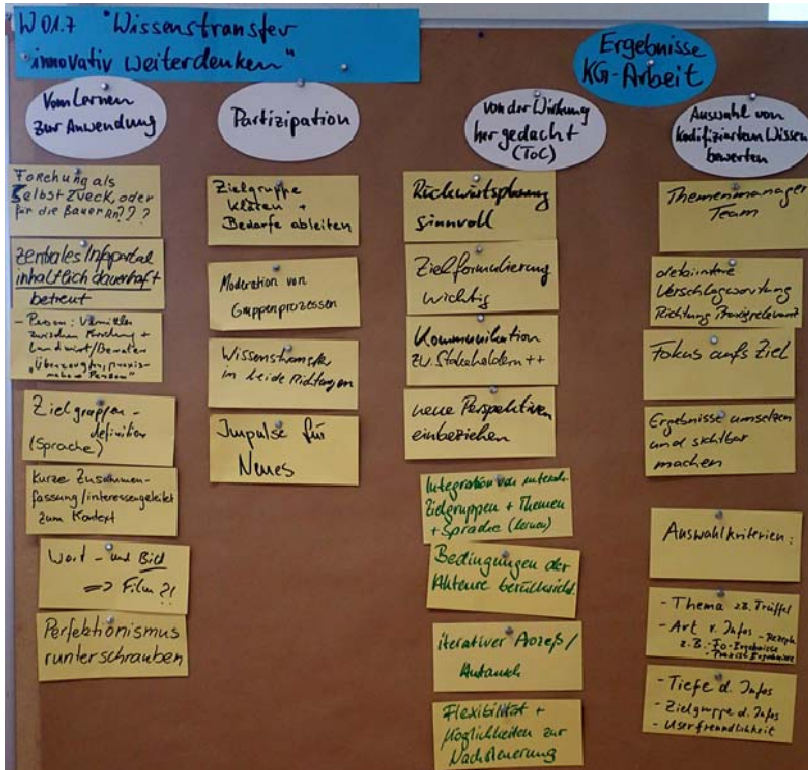 W 01.7 "Wissenstransfer
innovativ weiterdenken"
Ergebnisse
KG-Arbeit
Vom Lernen
zur Anwendung
Forschung als
Selbstzweck, oder
für die Bauern???
zentrales Infoportal
inhaltlich dauerhaft
betreut
- Person: Vermittler
zwischen Forschung +
Landwirt/Berater
Person"
Zielgruppen-
definition
(Sprache)
Kurze Zusammen-
fassung/interessengeleitet
zum Kontext
Wort- und Bild
=> Film?!
Perfektionismus
runterschrauben
Partizipation
Zielgruppe
klären +
Bedarfe ableiten
Moderation von
Gruppenprozessen
Wissenstransfer
in beide Richtungen
Impulse für
Neues
von der Wirkung
her gedacht
(ToC)
Rückwärtsplanung
sinnvoll
Zielformulierung
wichtig
Kommunikation
zu Stakeholdern ++
neue Perspektiven
einbeziehen
Integration von
Zielgruppen + Themen
+ Sprache (lernen)
Bedingungen der
Akteure berücksicht.
iterativer Prozeß/
Austausch
Flexibilität +
Möglichkeiten zur
Nachsteuerung
Auswahl von
kodifiziertem Wissen
bewerten
Themenmanager
Team
Verschlagwortung
Richtung Praxisrelevant
Fokus aufs Ziel
Ergebnisse umsetzen
und sichtbar
machen
Auswahlkriterien:
- Thema z.B. Trüffel
- Art v. Infos - Rezepte
z.B. - Fo-Ergebnisse
- Praxis Ergebnisse
- Tiefe d. Infos
- Zielgruppe d. Infos
- Userfreundlichkeit